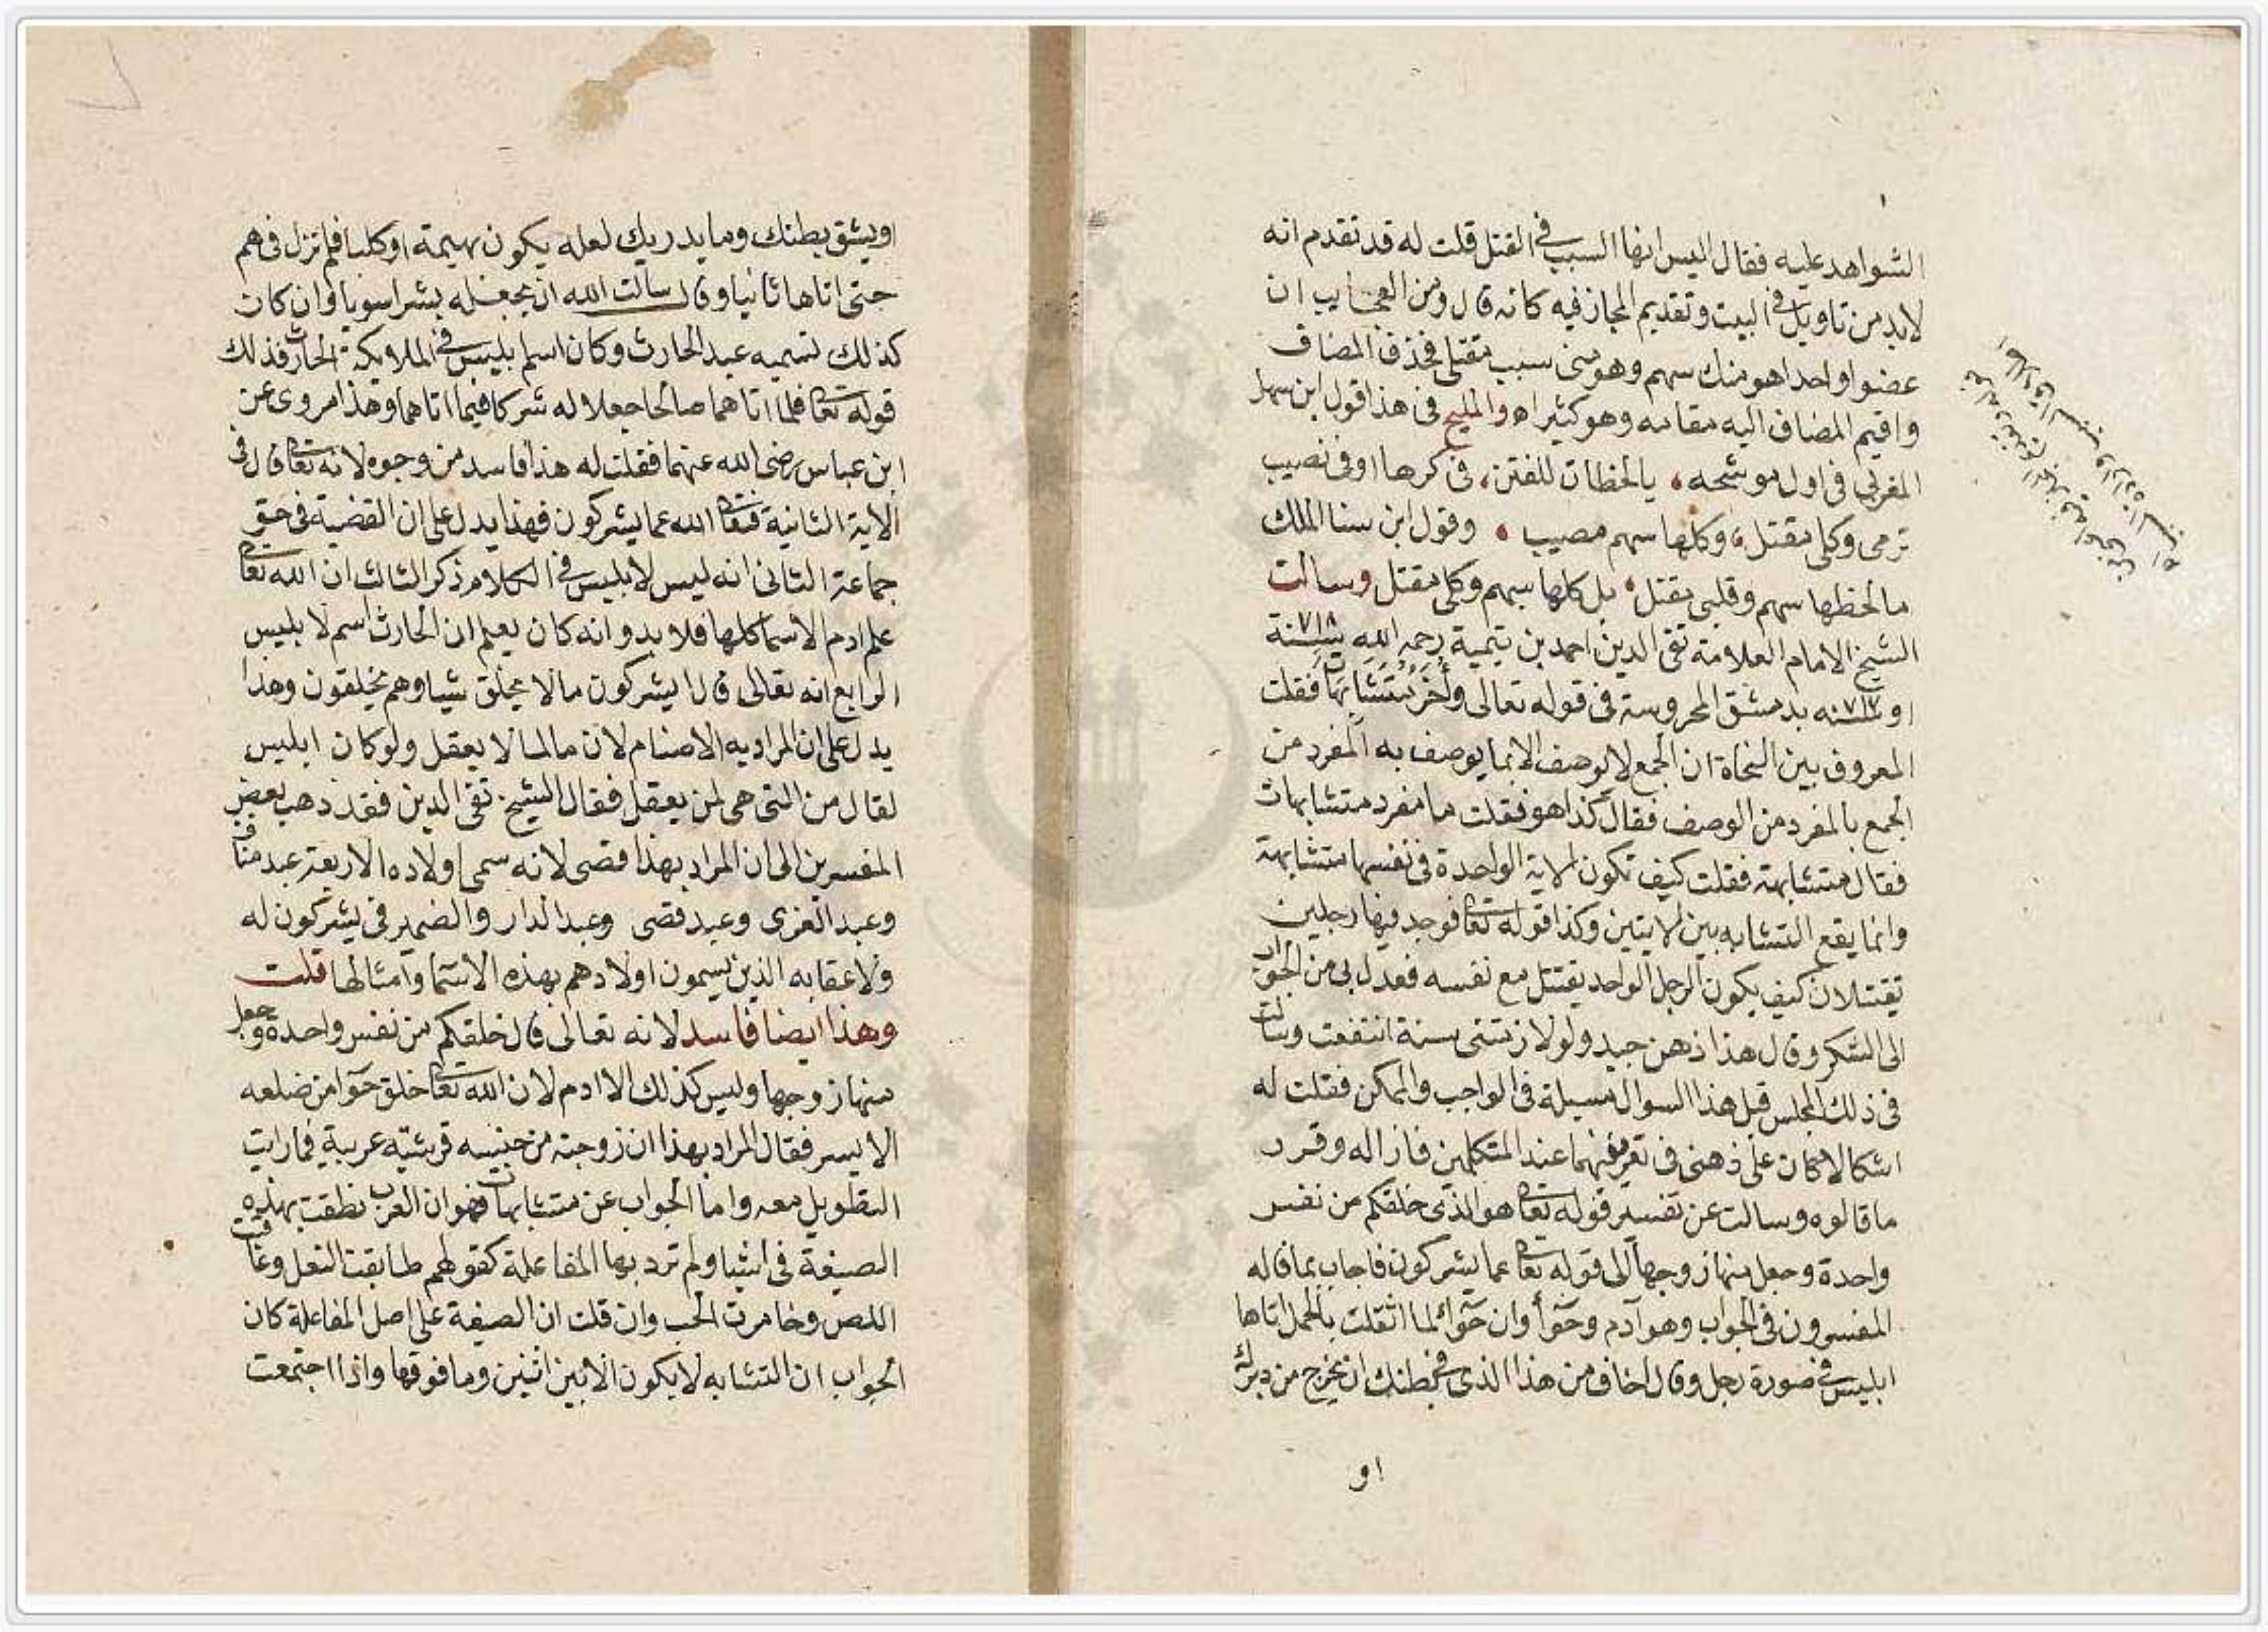 الشواهد عليه فقال اليس انها السبب في القتل قلت له قد تقدم انه
لابد من تاويل في البيت وتقديم المجاز فيه كانه قال ومن العجايب ان
عضوا واحدا هو منك سهم وهو منى سبب مقتلى فحذف المضاف
واقيم المضاف اليه مقامه وهو كثير اه والمليح في هذا قول ابن سهل
المغربي في اول موشحه، يالحظات للفتن، في كرها اوفى نصيب
ترمى وكلى مقتل، وكلها سهم مصيب، وقول ابن سنا الملك
مالحظها سهم وقلبى مقتل، بل كلها سهم وكلى مقتل وسالت
الشيخ الامام العلامة تقى الدين احمد بن تيمية رحمه الله سنة ٧١٨
او سنه ٧١٧ بدمشق المحروسة في قوله تعالى وأخر متشابهات فقلت
المعروف بين النحاة ان الجمع لا يوصف الا بما يوصف به المفرد من
الجمع بالمفرد من الوصف فقال كذا هو فقلت ما مفرد متشابهات
فقال متشابهة فقلت كيف تكون الاية الواحدة في نفسها متشابهة
وانما يقع التشابه بين الايتين وكذا قوله تعا فوجد فيها رجلين
يقتتلان كيف يكون الرجل الواحد يقتتل مع نفسه فعدل بى من الجواب
الى الشكر وقال هذا ذهن جيد ولو لازمتنى سنة انتفعت وسالت
في ذلك المجلس قبل هذا السوال مسيلة في الواجب والممكن فقلت له
اشكالا كان على ذهنى في تعريفهما عند المتكلمين فازاله وقرر
ما قالوه وسالت عن تفسير قوله تعا هو الذى خلقكم من نفس
واحدة وجعل منها زوجها الى قوله تعا عما يشركون فاجاب بما قاله
المفسرون في الجواب وهو آدم وحوأ وان حوآ لما اثقلت بالحمل اتاها
ابليس في صورة رجل وقال اخاف من هذا الذى في بطنك ان يخرج من دبرك
او
او يشق بطنك وما يدريك لعله يكون بهيمة او كلبا فلم تزل في هم
حتى اتاها ثانيا وقال سالت الله ان يجعله بشرا سويا وان كان
كذلك تسميه عبد الحارث وكان اسم ابليس في الملايكة الحارث فذلك
قوله تعا فلما اتاهما صالحا جعلا له شركا فيما اتاهما وهذا مروى عن
ابن عباس رضى الله عنهما فقلت له هذا فاسد من وجوه لانه تعا قال في
الاية الثانية فتعا الله عما يشركون فهذا يدل على ان القضية في حق
جماعة الثانى انه ليس لابليس في الكلام ذكر الثالث ان الله تعا
علم ادم الاسما كلها فلا بد وانه كان يعلم ان الحارث اسم لابليس
الرابع انه تعالى قال ايشركون مالا يخلق شيا وهم يخلقون وهذا
يدل على ان المراد به الاصنام لان ما لما لا يعقل ولو كان ابليس
لقال من التى هى لمن يعقل فقال الشيخ تقى الدين فقد ذهب بعض
المفسرين الى ان المراد بهذا قصى لانه سمى اولاده الاربعة عبد مناف
وعبد العزى وعبد قصى وعبد الدار والضمير في يشركون له
ولاعقابه الذين يسمون اولادهم بهذه الاسما وامثالها قلت
وهذا ايضا فاسد لانه تعالى قال خلقكم من نفس واحدة وجعل
منها زوجها وليس كذلك الا ادم لان الله تعا خلق حوآ من ضلعه
الايسر فقال المراد بهذا ان زوجته من جنسه قرشية عربية فما رايت
التطويل معه واما الجواب عن متشابهات فهو ان العرب نطقت بهذه
الصيغة في اشيا ولم ترد بها المفاعلة كقولهم طابقت النعل وعاقبت
اللص وخامرت الحب وان قلت ان الصيغة على اصل المفاعلة كان
الجواب ان التشابه لا يكون الا بين اثنين وما فوقها واذا اجتمعت